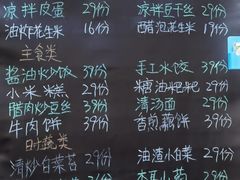 凉拌皮蛋 29份 凉拌豆干丝 29份
油炸花生米 16份 西醋泡花生米 19份
主食类
酱油炒饭 39份 手工水饺 39份
小米糕 29份 糖油粑粑 29份
腊肉炒豆丝 39份 清汤面 29份
牛肉饼 39份 香煎藕饼 39份
时蔬类
清炒白菜苔 29份 油渣小白菜 29份
木耳小菜